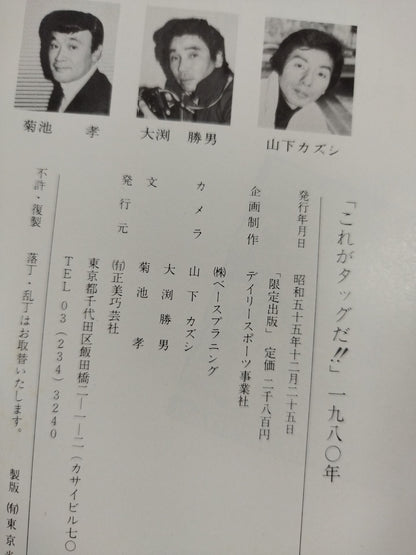 菊池 孝
大渕 勝男
山下カズシ
「これがタッグだ!!」一九八〇年
発行年月日 昭和五十五年十二月二十五日
「限定出版」 定価 二千八百円
企画制作 デイリースポーツ事業社
㈱ベースプラニング
カメラ 山下カズシ
大渕勝男
文 菊池 孝
発行元 ㈲正美巧芸社
東京都千代田区飯田橋二―一―二(カサイビル七〇
TEL 03(234)3240
不許・複製 落丁・乱丁はお取替いたします。
製版 ㈲東京